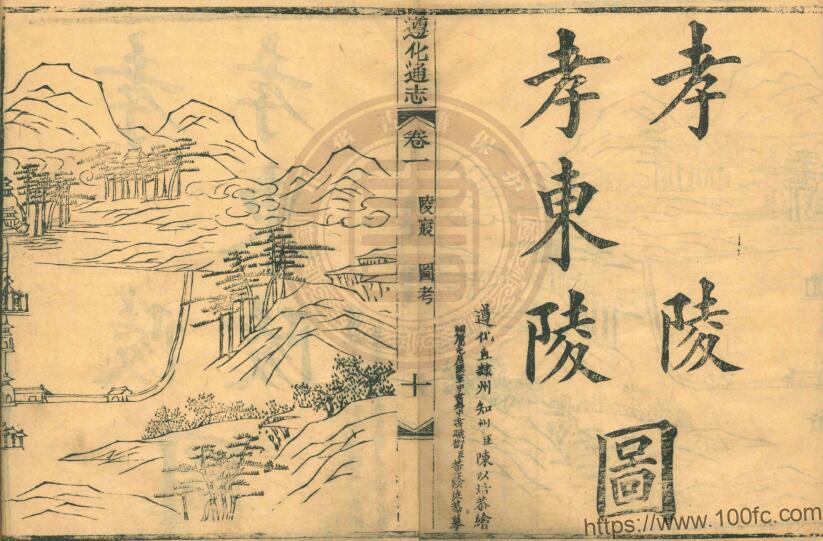 孝陵
孝東陵
圖
遵化直隸州知州臣陳以培恭繪
恭摹
遵化通志
卷一
陵寢 圖考
十
https://www.100fc.com